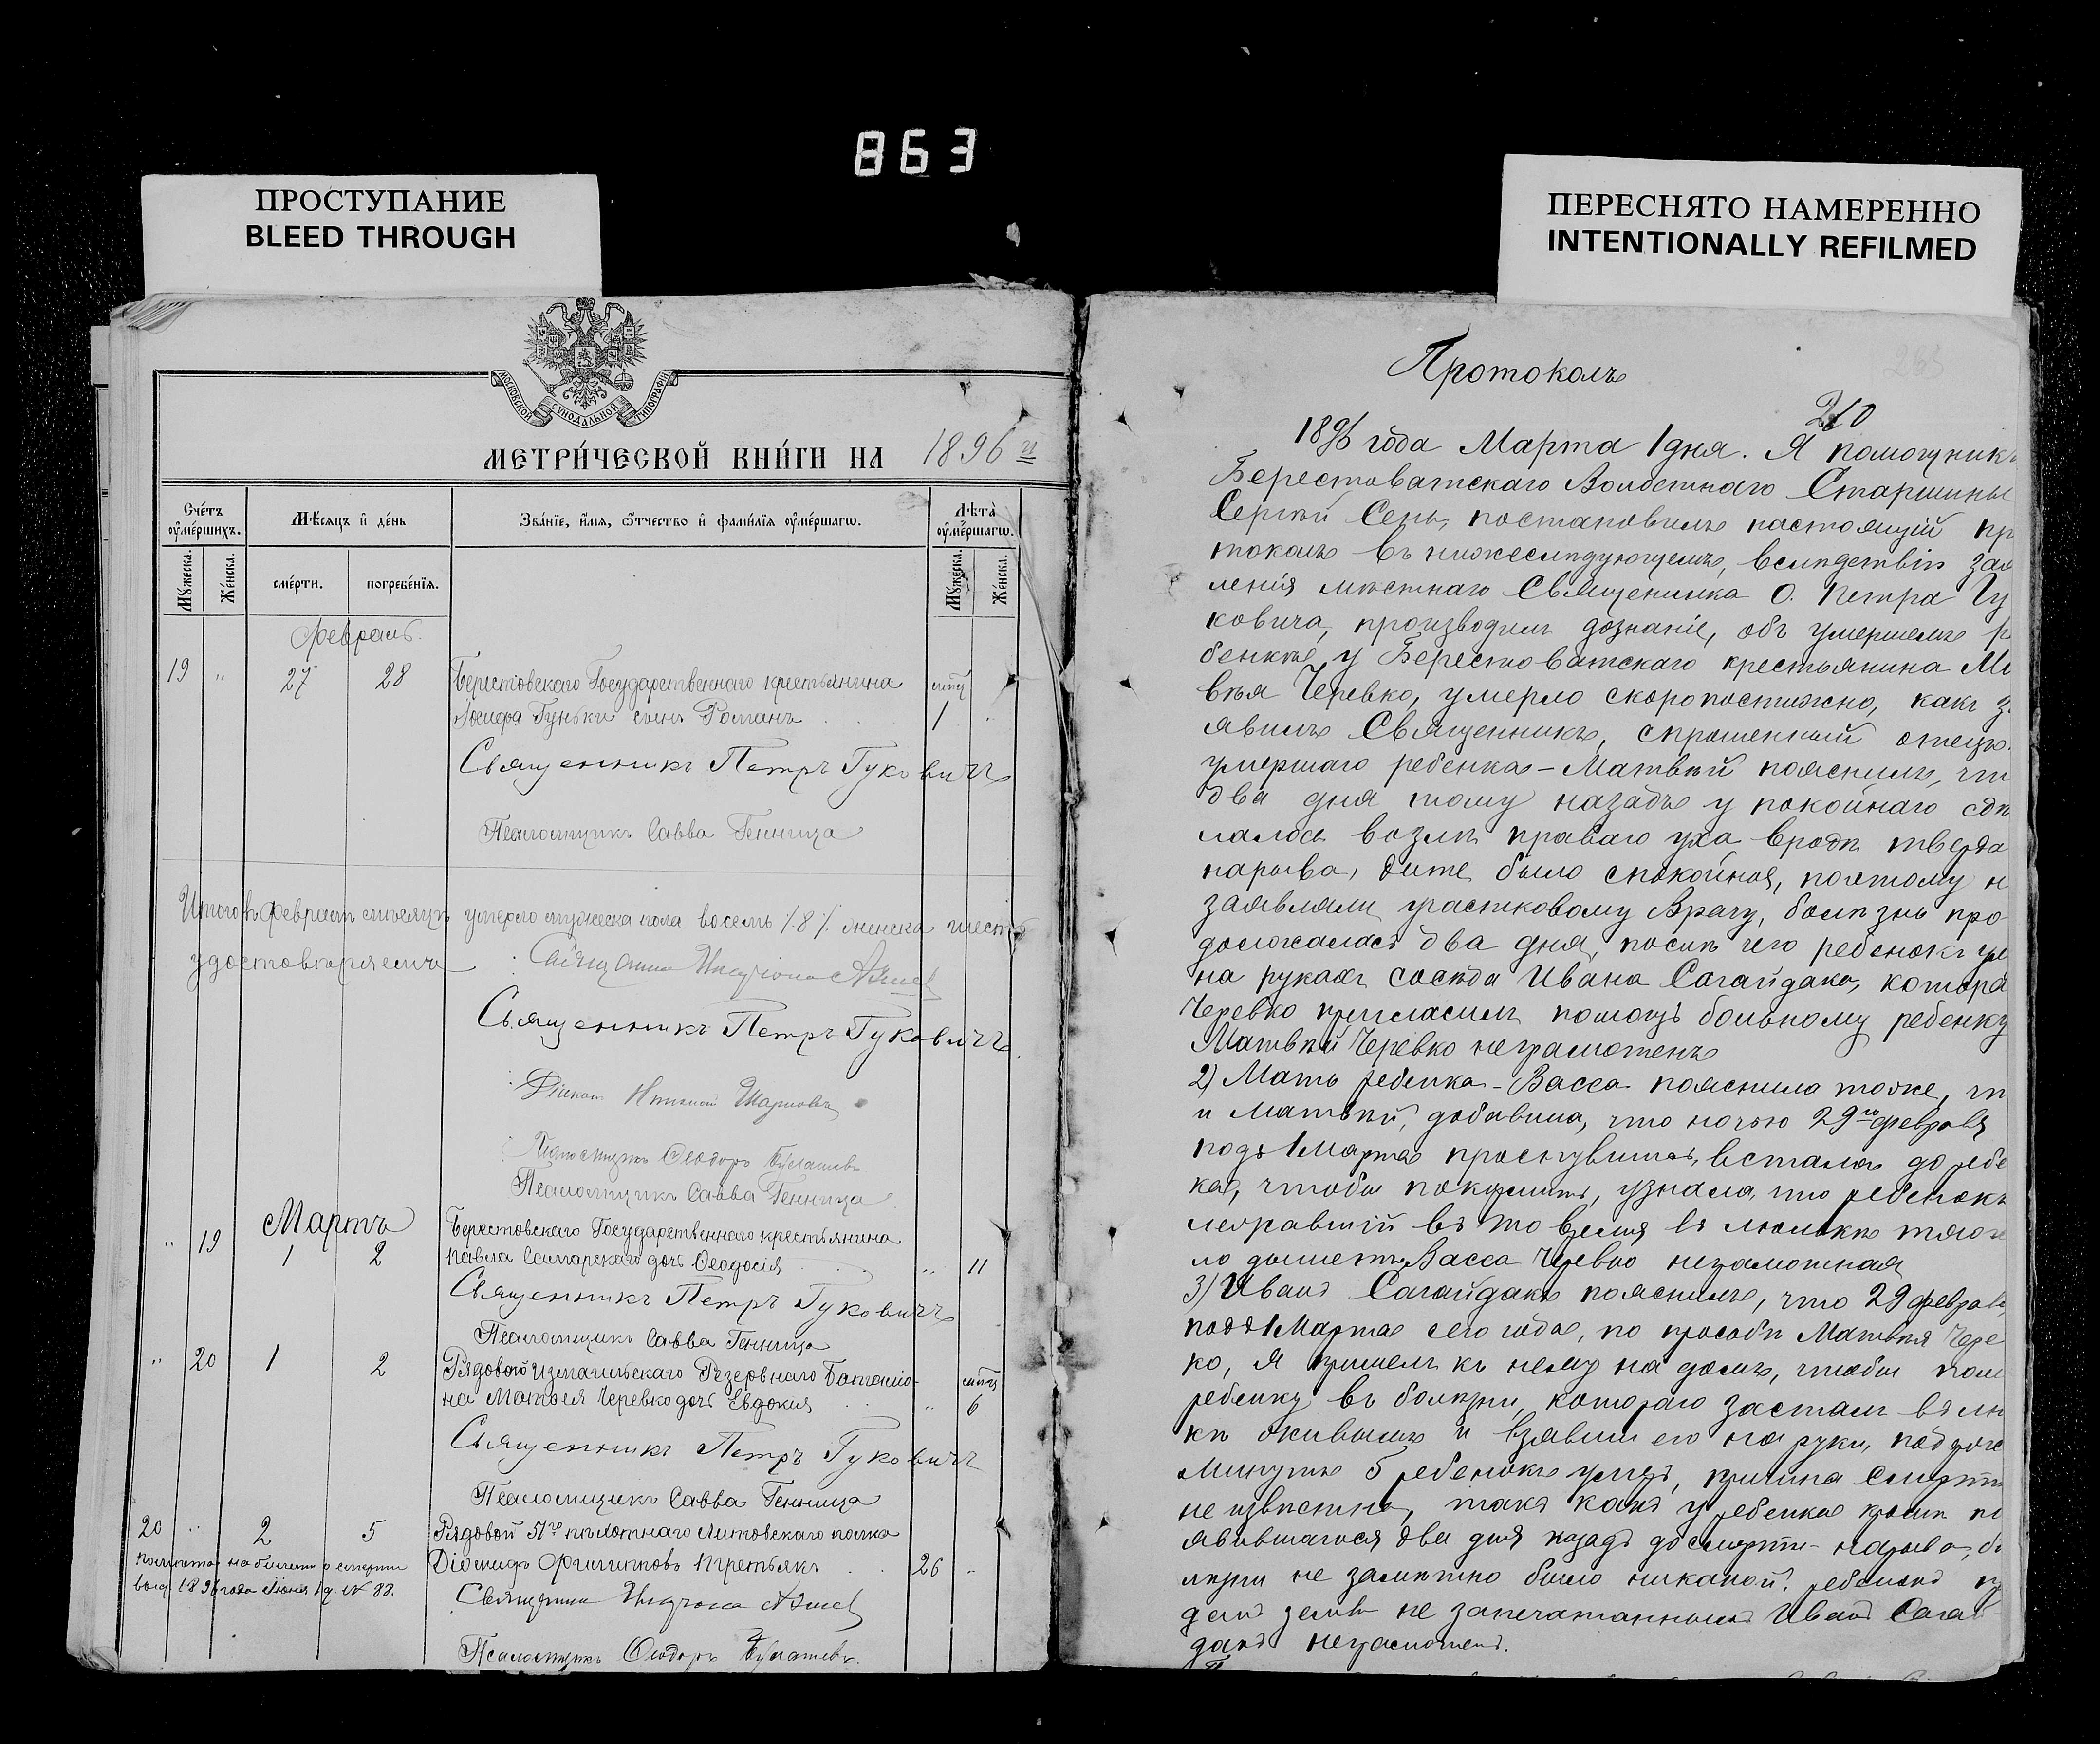 863
ПРОСТУПАНИЕ
BLEED THROUGH
ПЕРЕСНЯТО НАМЕРЕННО
INTENTIONALLY REFILMED
МОСКОВСКОЙ СѴНОДАЛЬНОЙ ТИПОГРАФІИ
МЕТРИ́ЧЕСКОЙ КНИ́ГИ НА 1896 г.
Сче́тъ ᲂу҆ме́ршихъ.
Мѣ́сѧцъ и҆ де́нь
Зва́нїе, и҆́мѧ, ѻ҆́тчество и҆ фами́лїѧ ᲂу҆ме́ршагѡ.
Лѣ́та ᲂу҆ме́ршагѡ.
Мꙋ́жеска.
Же́нска.
сме́рти.
погребе́нїѧ.
Мꙋ́жеска.
Же́нска.
Февраль.
19 " 27 28 Берестовскаго Государственнаго крестьянина
Іосифа Гуньки сынъ Романъ 1
Священникъ Петръ Гуковичъ
Псаломщикъ Савва Генница
Итого въ февралѣ мѣсяцѣ умерло мужеска пола восемь /8/ женска шесть
удостовѣряемъ
Священникъ
Священникъ Петръ Гуковичъ.
Псаломщикъ Ѳеодоръ
Псаломщикъ Савва Генница
Мартъ
" 19 1 2 Берестовскаго Государственнаго крестьянина
Павла Самарскаго дочь Ѳеодосія " 11
Священникъ Петръ Гуковичъ
Псаломщикъ Савва Генница
" 20 1 2 Рядовой Измаильскаго Резервнаго Баталіо-
на Матвея Черевко дочь Евдокия " 6
Священникъ Петръ Гуковичъ
Псаломщикъ Савва Генница
20 " 2 5 Рядовой 51го пѣхотнаго Литовскаго полка
Діомидъ Филипповъ Третьякъ 26 "
о смерти
выд. 1896 года Іюня 1 д. № 88.
Священникъ
Псаломщикъ Ѳеодоръ
Протоколъ
210
1896 года Марта 1 дня. Я помощникъ
Берестоватскаго Волостнаго Старшины
Сергѣй Сень, постановилъ настоящій пр
токолъ въ нижеслѣдующемъ, вслѣдствіи зая
ленія мѣстнаго Священника О. Петра Гу
ковича, производилъ дознаніе, объ умершемъ р
бенкѣ, у Берестоватскаго крестьянина Ма
вѣя Черевко, умерло скоропостижно, какъ з
явилъ Священникъ, спрошенный отецъ
умершаго ребенка - Матвѣй пояснилъ, что
два дня тому назадъ у покойнаго сдѣ
лалось возлѣ праваго уха вродѣ твердa
нарыва, дите было спокойноя, поэтому н
заявляли участковому Врачу, болѣзнь про
должалась два дня, послѣ чего ребенокъ ум
на рукахъ сосѣда Ивана Сагайдака, котора
Черевко пригласилъ помощь больному ребенку
Матвѣй Черевко неграмотенъ
2) Мать ребенка - Васса пояснила тоже, чт
и Матвѣй, добавила, что ночью 29го февраля
подъ 1 Марта проснувшись, встала до ребе
ка, чтобы покормить, узнала, что ребенокъ
лежавшій въ то время въ люлькѣ тяже
ло дышетъ Васса Черевко неграмотная
3) Иванъ Сагайдакъ пояснилъ, что 29 феврал
подъ 1 Марта сего года, по просьбѣ Матвѣя Чере
ко, я пришелъ къ нему на домъ, чтобы пом
ребенку въ болѣзни, котораго засталъ въ лю
кѣ живымъ и взявши его на руки,
минутъ 5 ребенокъ умеръ, причина смерти
не извѣстна, такъ какъ у ребенка кромѣ по
явившагося два дня назадъ до смерти - нарыва, бо
лѣзни не замѣтно было никакой. ребенокъ
землѣ не запечатанный Иванъ Сагай
дакъ неграмотенъ.